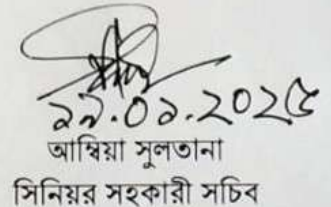 ২৯.০১.২০২৫
আম্বিয়া সুলতানা
সিনিয়র সহকারী সচিব